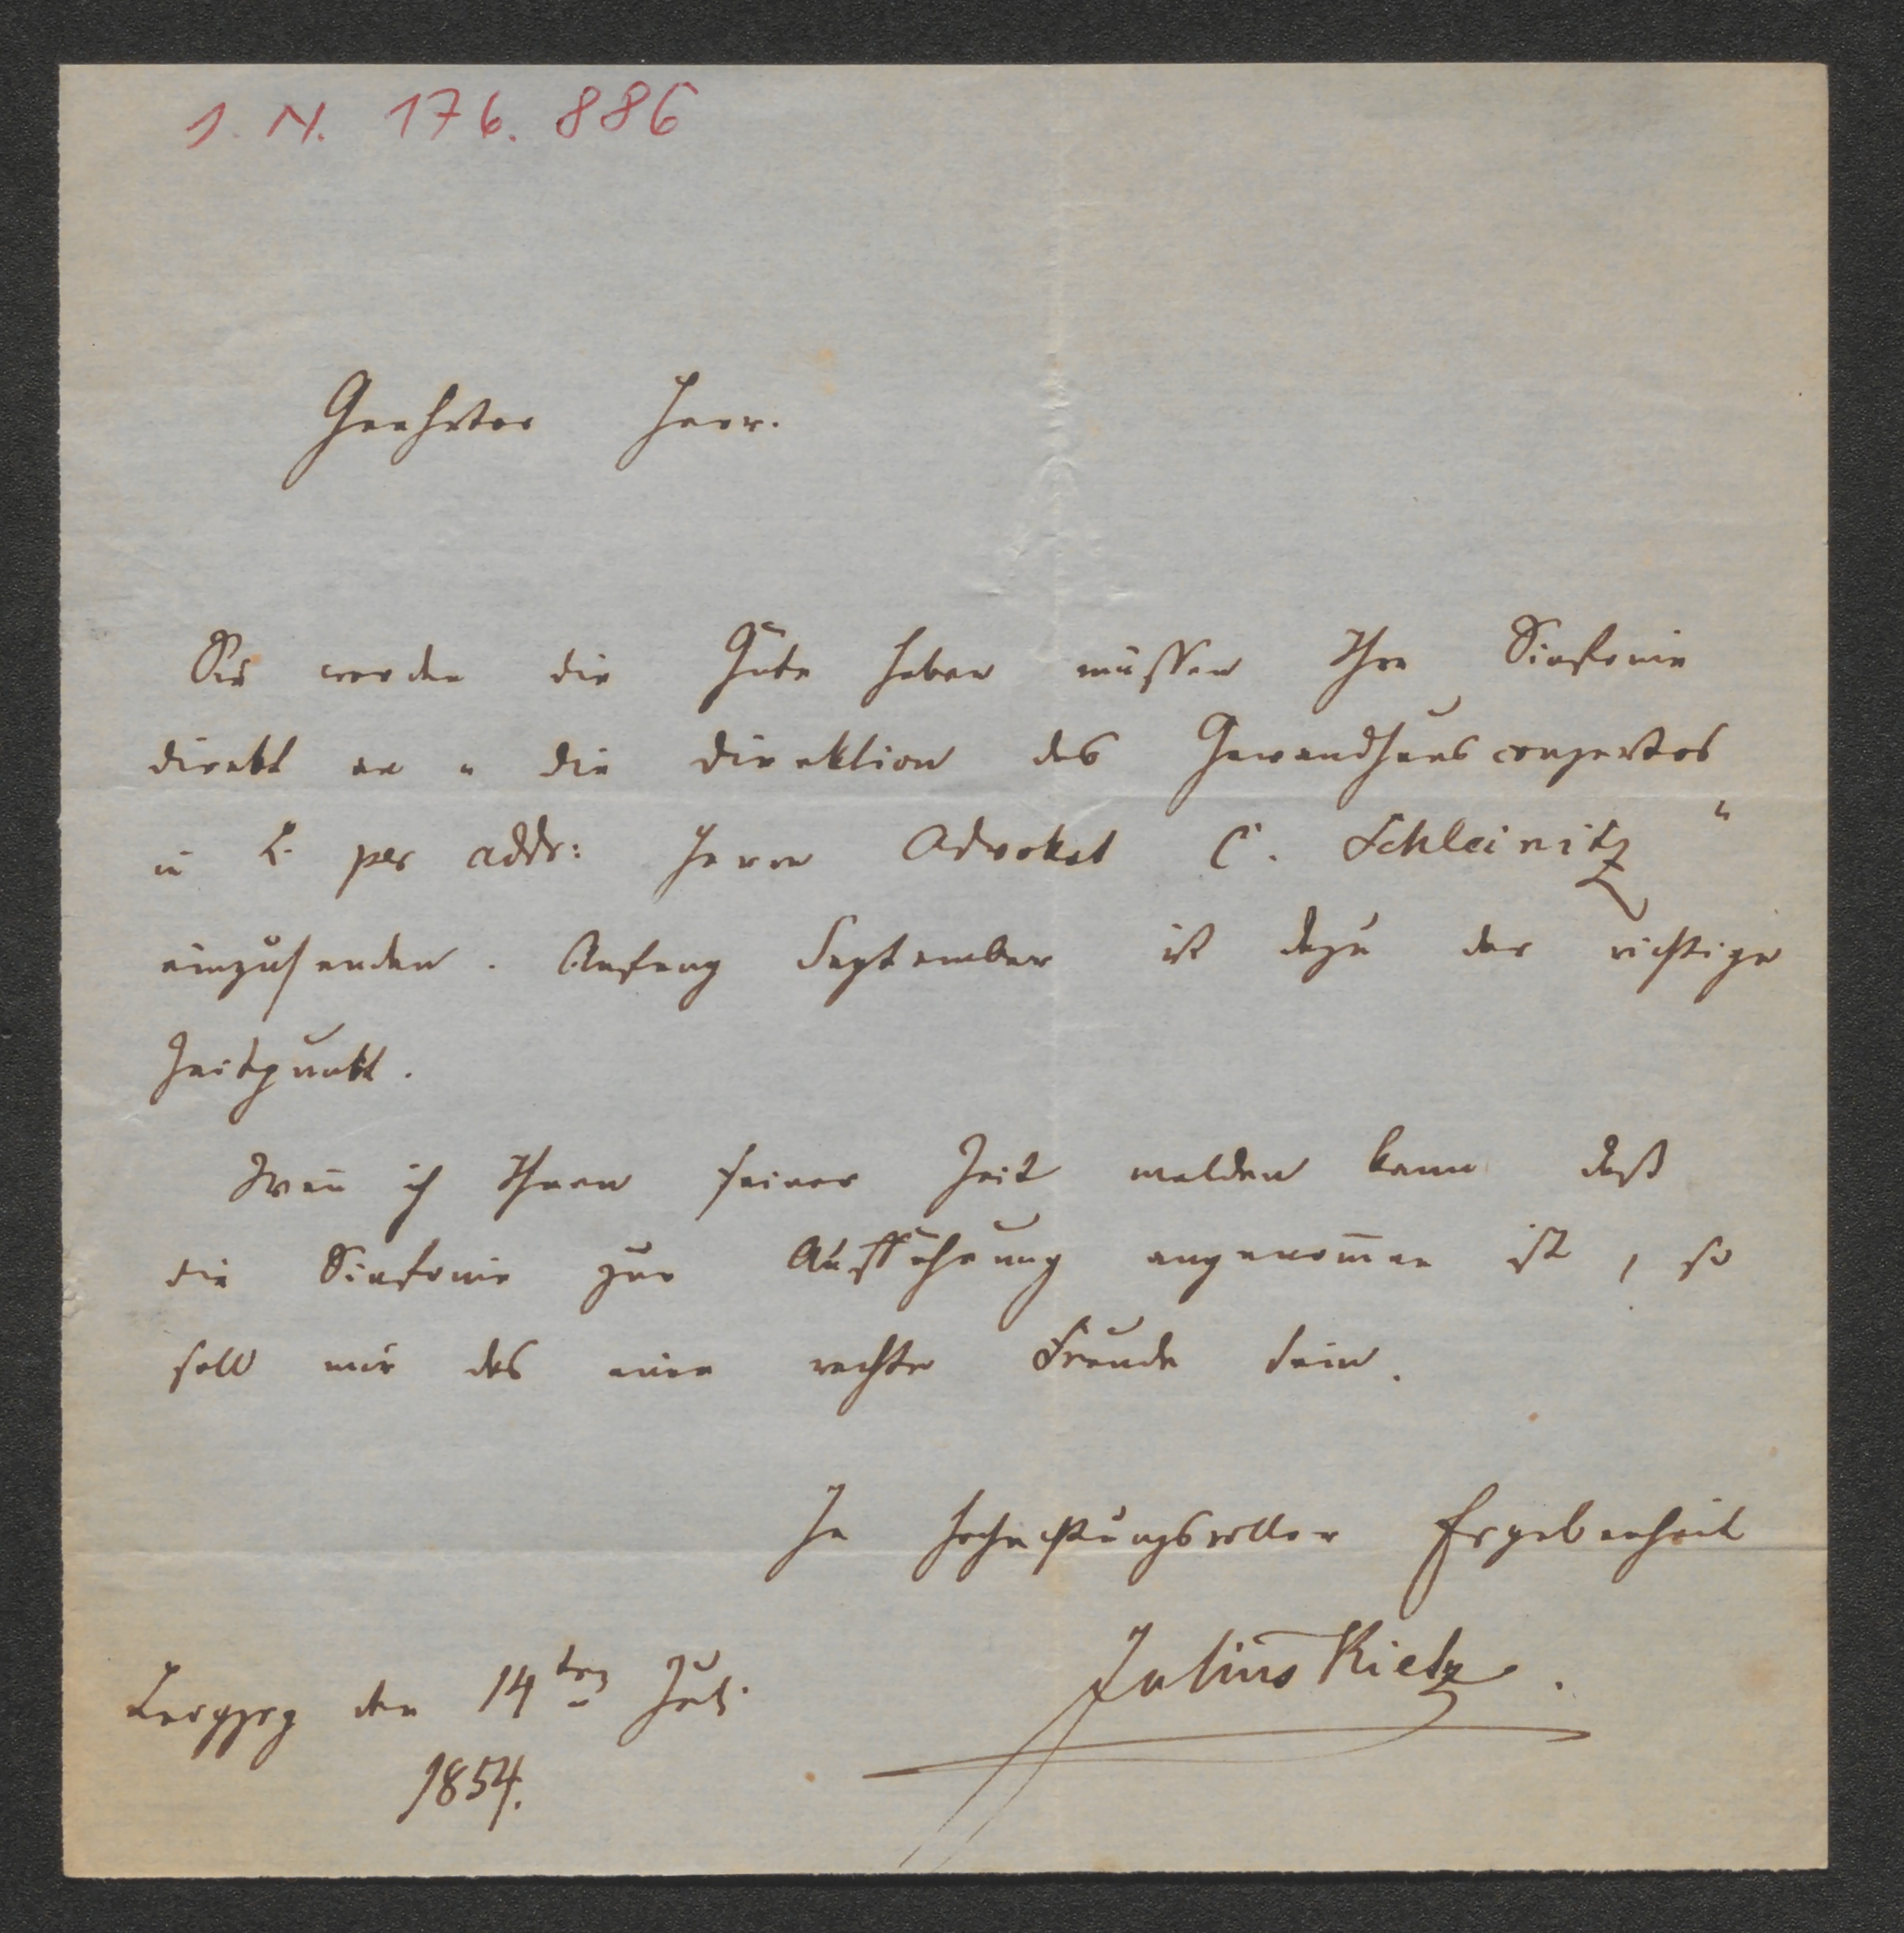 J. N. 176.886
Geehrter Herr.
Sie werden die Güte haben müssen Ihre Sinfonie
direkt an " die Direktion des Gewandhausconzertes
in L. per addr: Herrn Advokat C. Schleinitz "
einzusenden. Anfang September ist dazu der richtige
Zeitpunkt.
Weñ ich Ihnen seiner Zeit melden kann daß
die Sinfonie zur Aufführung angenom̄en ist, so
soll mir das eine rechte Freude sein.
In hochachtungsvoller Ergebenheit
Julius Rietz.
Leipzig den 14ten Juli
1854.